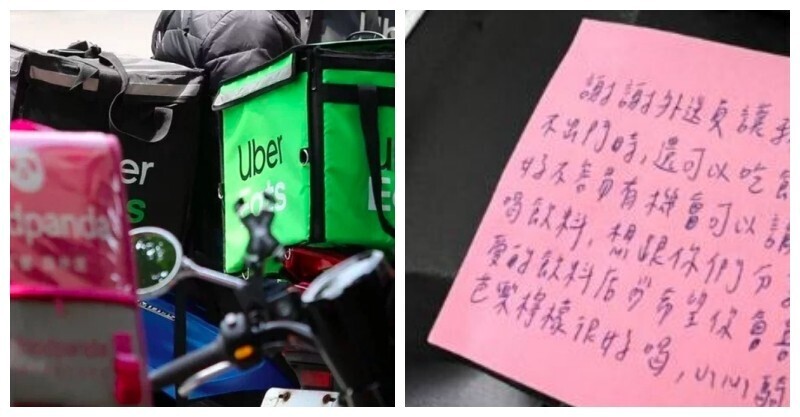 er
s
Uber
Eats
U
E
dpanda
謝謝外送員讓我
不出門時,還可以吃飽
好不容易有機會可以請
喝飲料,想跟你們分
愛的飲料店 希望你會喜
芭樂檸檬很好喝,小心騎